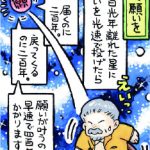 願いを
百光年離れた星に
願いを光速で投げた!
えいっ
届くのに
二百年。
戻ってくる
のに二百年。
願いがかなうの
早速で四百年
かかります